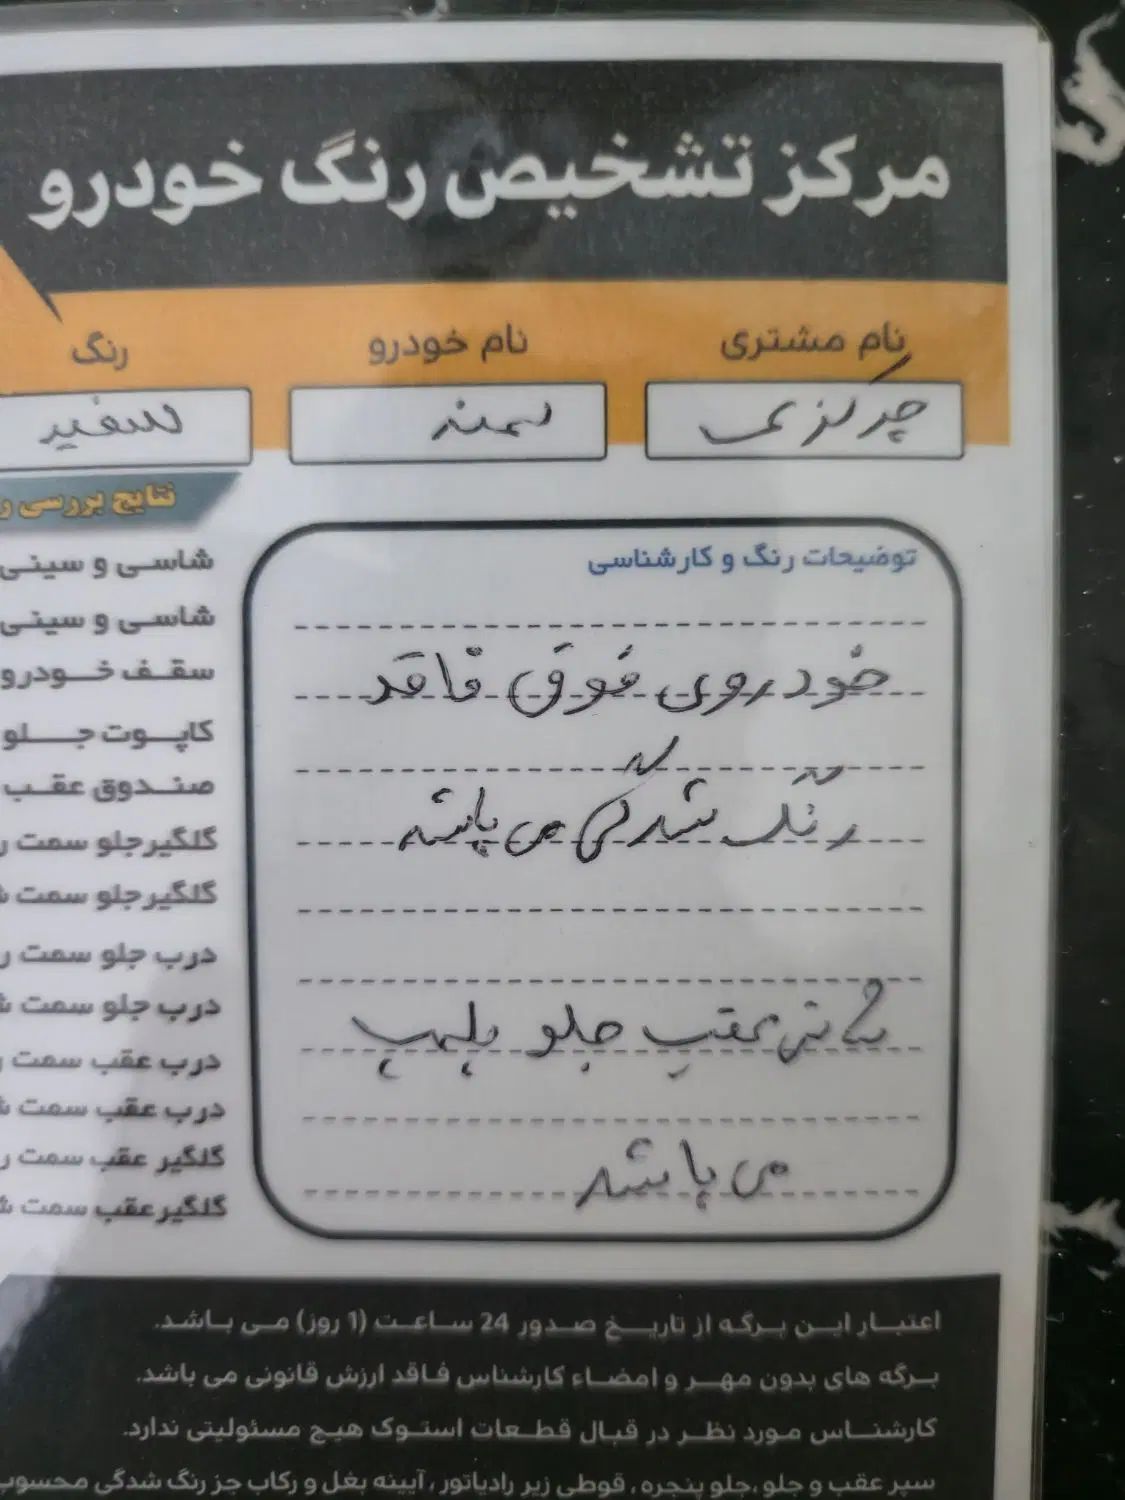 مرکز تشخیص رنگ خودرو
نام مشتری
نام خودرو
رنگ
چرکزی
سمند
سفید
توضیحات رنگ و کارشناسی
خودروی فوق فاقد
رنگ شدگی می باشد
عقب جلو پلمپ
می باشد
نتایج بررسی
شاسی و سینی
شاسی و سینی
سقف خودرو
کاپوت جلو
صندوق عقب
گلگیر جلو سمت
گلگیر جلو سمت
درب جلو سمت
درب جلو سمت
درب عقب سمت
درب عقب سمت
گلگیر عقب سمت
گلگیر عقب سمت
اعتبار این برگه از تاریخ صدور 24 ساعت (1 روز) می باشد.
برگه های بدون مهر و امضاء کارشناس فاقد ارزش قانونی می باشد.
کارشناس مورد نظر در قبال قطعات استوک هیچ مسئولیتی ندارد.
سپر عقب و جلو ،جلو پنجره ، قوطی زیر رادیاتور ، آیینه بغل و رکاب جز رنگ شدگی محسوب